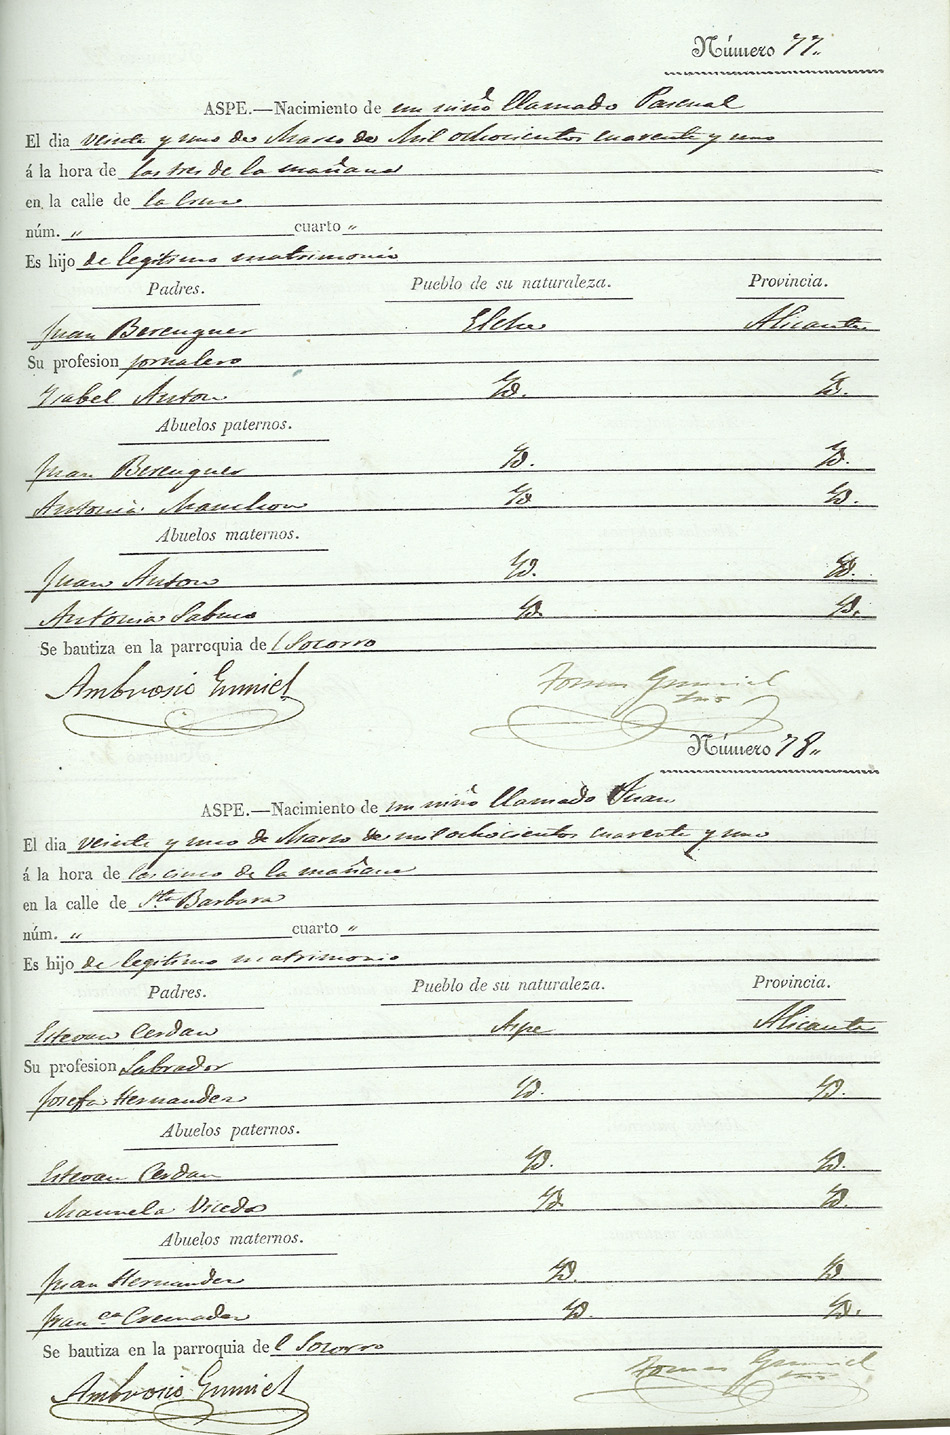 Número 77.
ASPE.—Nacimiento de un niño llamado Pascual
El dia veinte y uno de Marzo de Mil ochocientos cuarenta y uno
á la hora de las tres de la mañana
en la calle de la Cruz
núm. " cuarto "
Es hijo de legitimo matrimonio
Padres. Pueblo de su naturaleza. Provincia.
Juan Berenguer Elche Alicante
Su profesion jornalero
Ysabel Anton Yd. Yd.
Abuelos paternos.
Juan Berenguer Yd. Yd.
Antonia Manchon Yd. Yd.
Abuelos maternos.
Juan Anton Yd. Yd.
Antonia Yd. Yd.
Se bautiza en la parroquia del Socorro
Ambrosio Gumiel Tomas Gumiel
Número 78.
ASPE.—Nacimiento de un niño llamado Juan
El dia veinte y uno de Marzo de mil ochocientos cuarenta y uno
á la hora de las cinco de la mañana
en la calle de Sta Barbara
núm. " cuarto "
Es hijo de legitimo matrimonio
Padres. Pueblo de su naturaleza. Provincia.
Estevan Cerdan Aspe Alicante
Su profesion Labrador
Josefa Hernandez Yd. Yd.
Abuelos paternos.
Estevan Cerdan Yd. Yd.
Manuela Vicedo Yd. Yd.
Abuelos maternos.
Juan Hernandez Yd. Yd.
Franca Cremades Yd. Yd.
Se bautiza en la parroquia del Socorro
Ambrosio Gumiel Tomas Gumiel